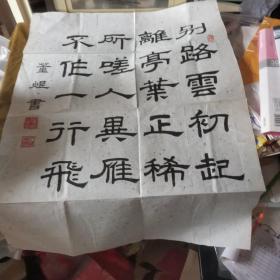 別路雲初起
離亭葉正稀
所嗟人異雁
不作一行飛
董崐書